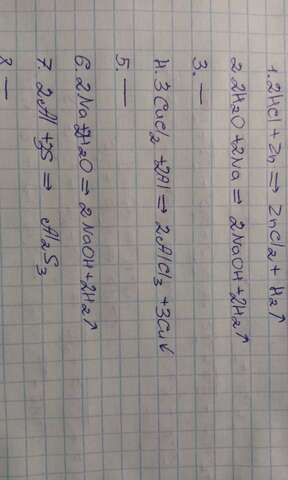 1. 2HCl + Zn ⇒ ZnCl2 + H2↑
2 2H2O + 2Na ⇒ 2NaOH + 2H2↑
3. —
4. 3CuCl2 + 2Al ⇒ 2AlCl3 + 3Cu↓
5. —
6. 2Na + 2H2O ⇒ 2NaOH + 2H2↑
7. 2Al + 3S ⇒ Al2S3
8 —